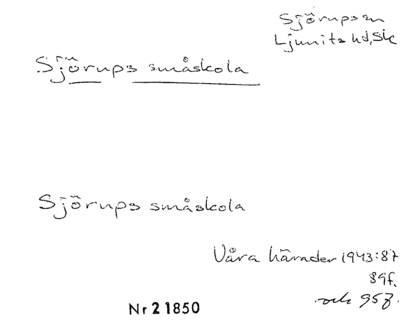 Sjörups sn
Ljunits hd, Sk
Sjörups småskola
Sjörups småskola
Våra härader 1943:87
89f.
och 95f.
Nr 21850